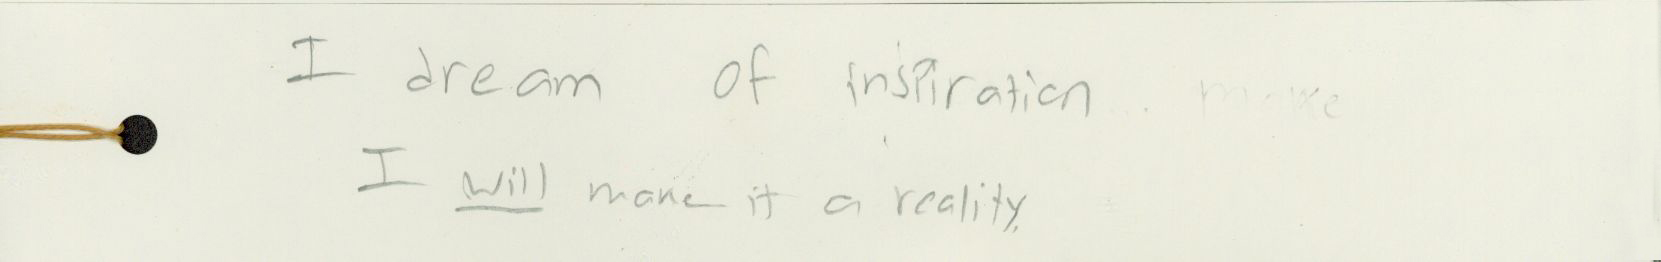 I dream of inspiration... make
I will make it a reality.